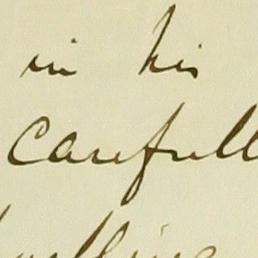 in his
Carefull